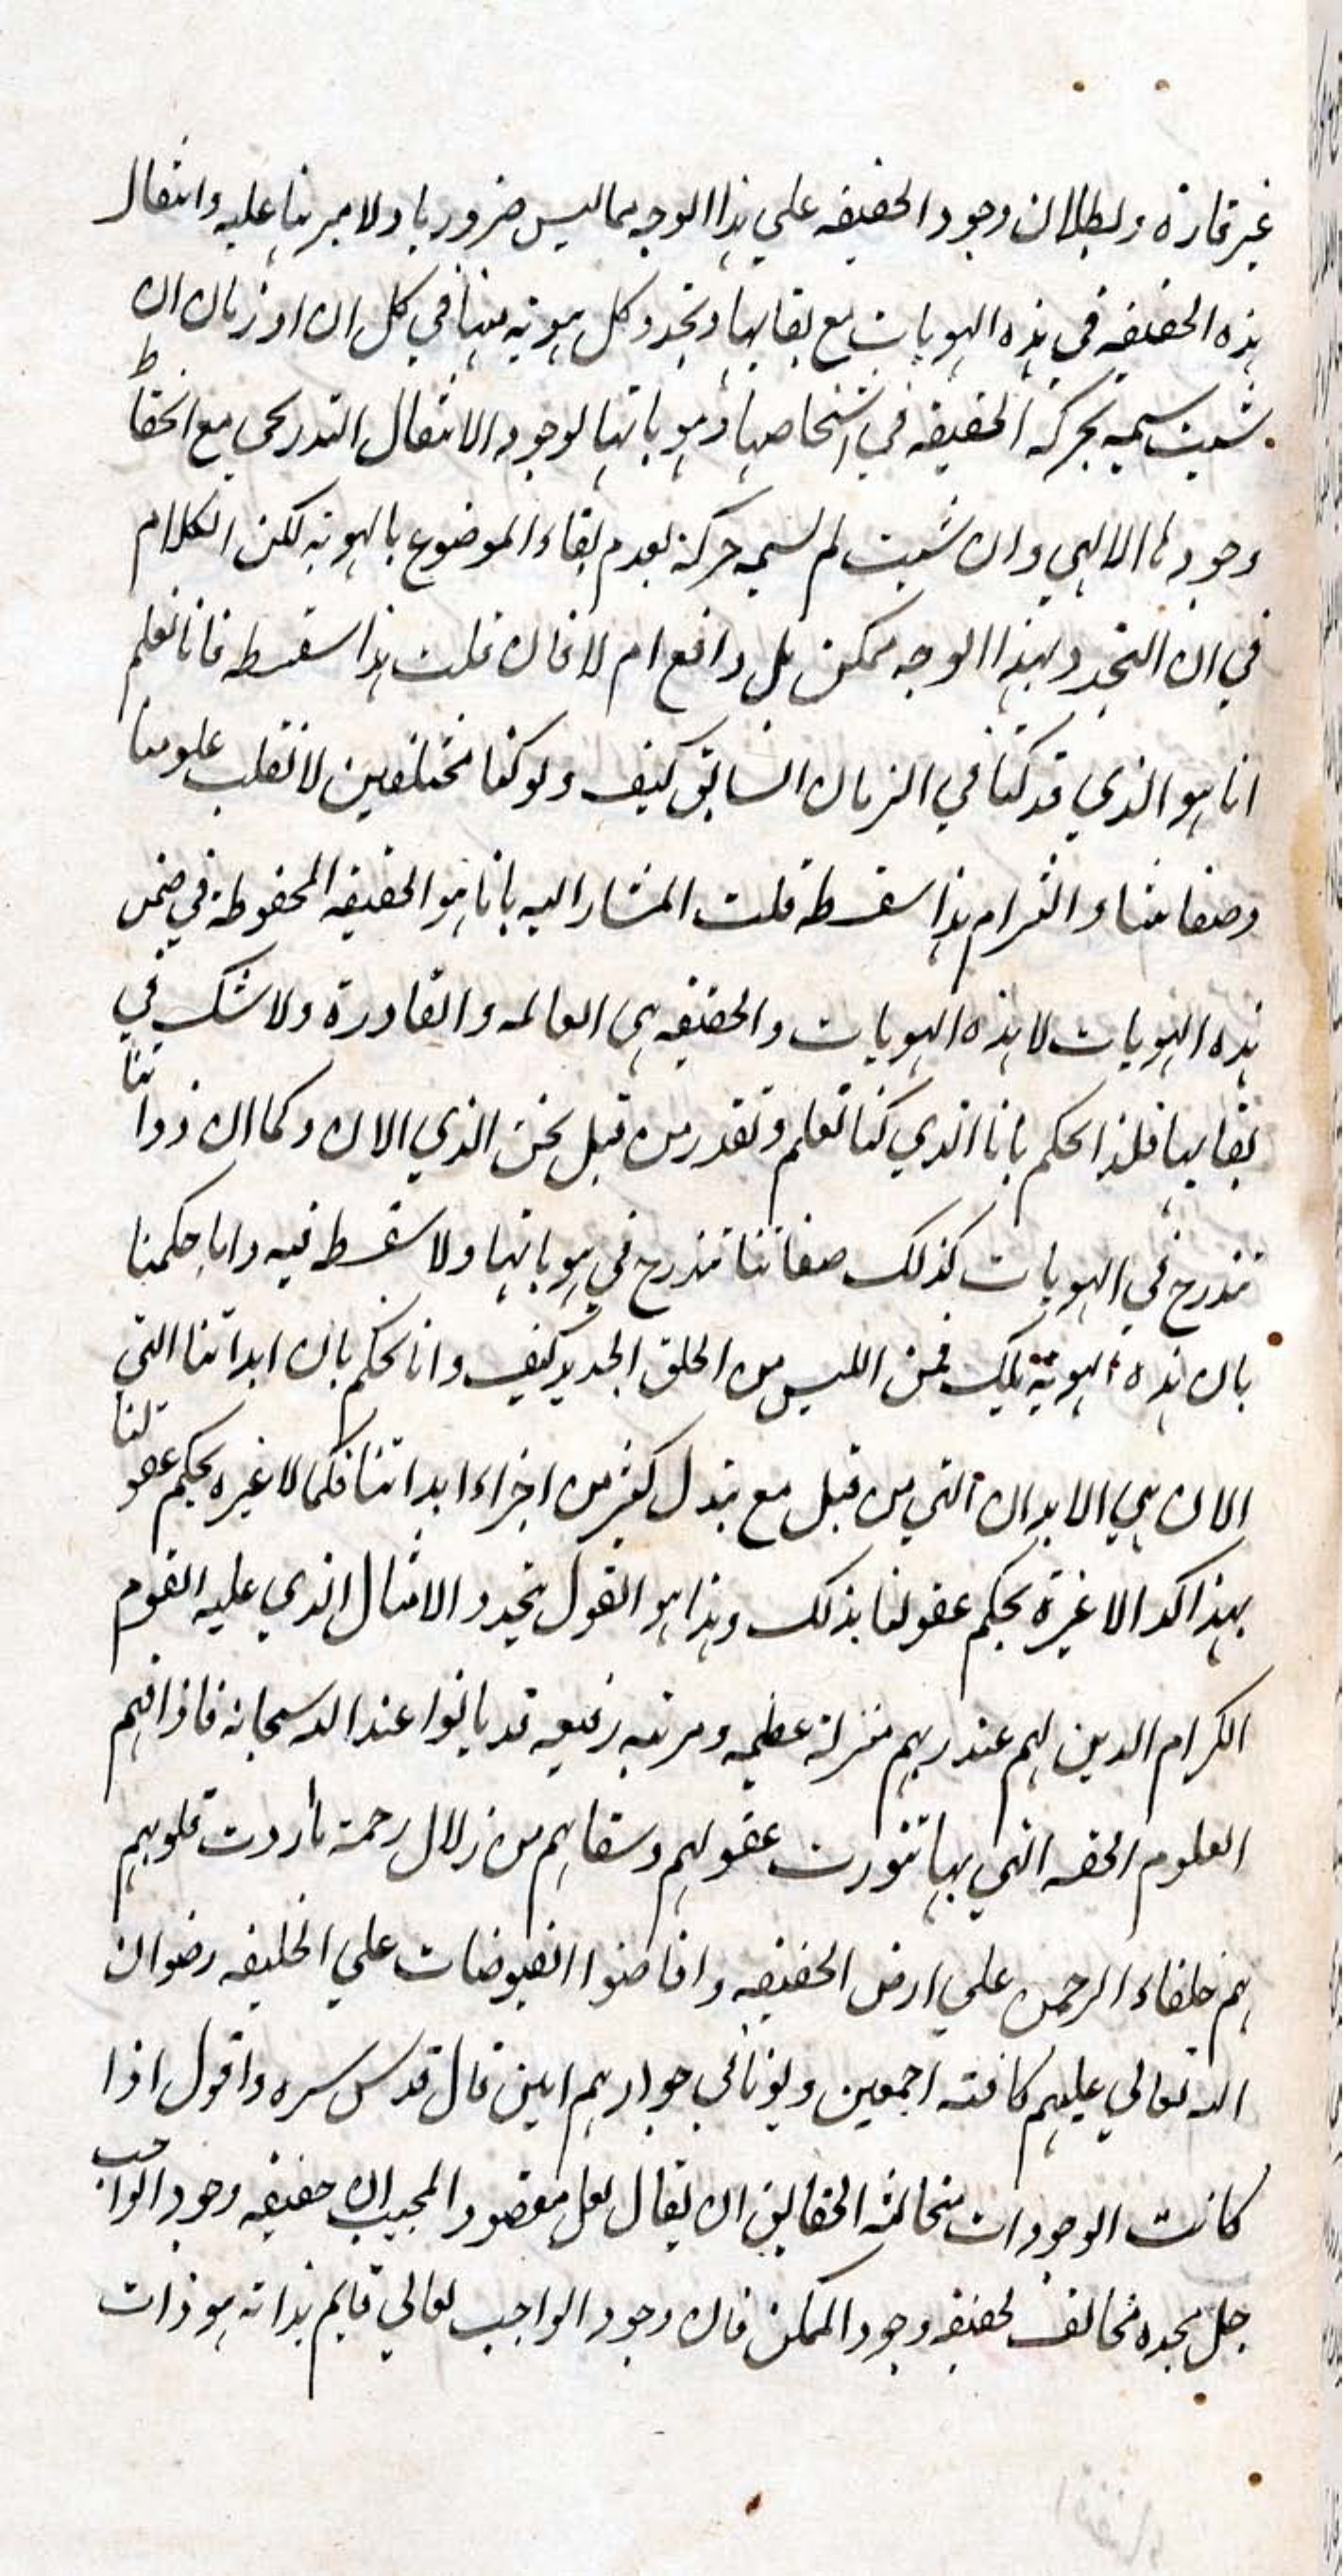 غير قارة وبطلان وجود الحقيقه علي هذا الوجه مما ليس ضروريا ولا مبرهنا عليه وانتقال
هذه الحقيقه في هذه الهويات مع بقايها وتجدد كل هويه منها في كل ان او زمان ان
شيت سميه بحركه الحقيقه في اشخاصها وهوياتها لوجود الانتقال التدريجي مع انحفاظ
وجودها الالهي وان شيت لم تسمه حركة لعدم بقاء الموضوع بالهويه لكن الكلام
في ان التجدد بهذا الوجه ممكن بل واقع ام لا فان قلت هذا سفسطه فانا نعلم
انا هو الذي قد كنا في الزمان السابق كيف ولو كنا مختلفين لانقلب علومنا
وصفاتنا والتزام هذا سفسطة قلت المشار اليه بانا هو الحقيقه المحفوظة في ضمن
هذه الهويات لا هذه الهويات والحقيقه هي العالمه والقادرة ولا شك في
بقايها فلذا حكم بانا الذي كنا نعلم ونقدر من قبل نحن الذي الان وكما ان ذواتنا
تندرج في الهويات كذلك صفاتنا تندرج في هوياتها ولا سفسطه فيه واما حكمنا
بان هذه الهوية تلك فمن اللبس من الخلق الجديد كيف وانا نحكم بان ابداننا التي
الان هي الابدان التي من قبل مع تبدل كثير من اجزاء ابداننا فكما لا غيره بحكم عقولنا
بهذا كذا لا غيرة بحكم عقولنا بذلك وهذا هو القول بتجدد الامثال الذي عليه القوم
الكرام الذين لهم عند ربهم منزلة عظيمه ومرتبه رفيعه قد باتوا عند الله سبحانه فاذاقهم
العلوم الحقه التي بها تنورت عقولهم وسقاهم من زلال رحمة بأردت قلوبهم
هم خلفاء الرحمن علي ارض الحقيقه وافاضوا الفيوضات علي الخليفه رضوان
الله تعالي عليهم كافته اجمعين ويؤتاني جوارهم امين قال قدس سره واقول اذا
كانت الوجودات متخالفة الحقايق ان يقال لعل مقصود المجيب ان حقيقه وجود الواجب
جل مجده مخالف لحقيقه وجود الممكن فان وجود الواجب تعالي قايم بذاته هو ذات